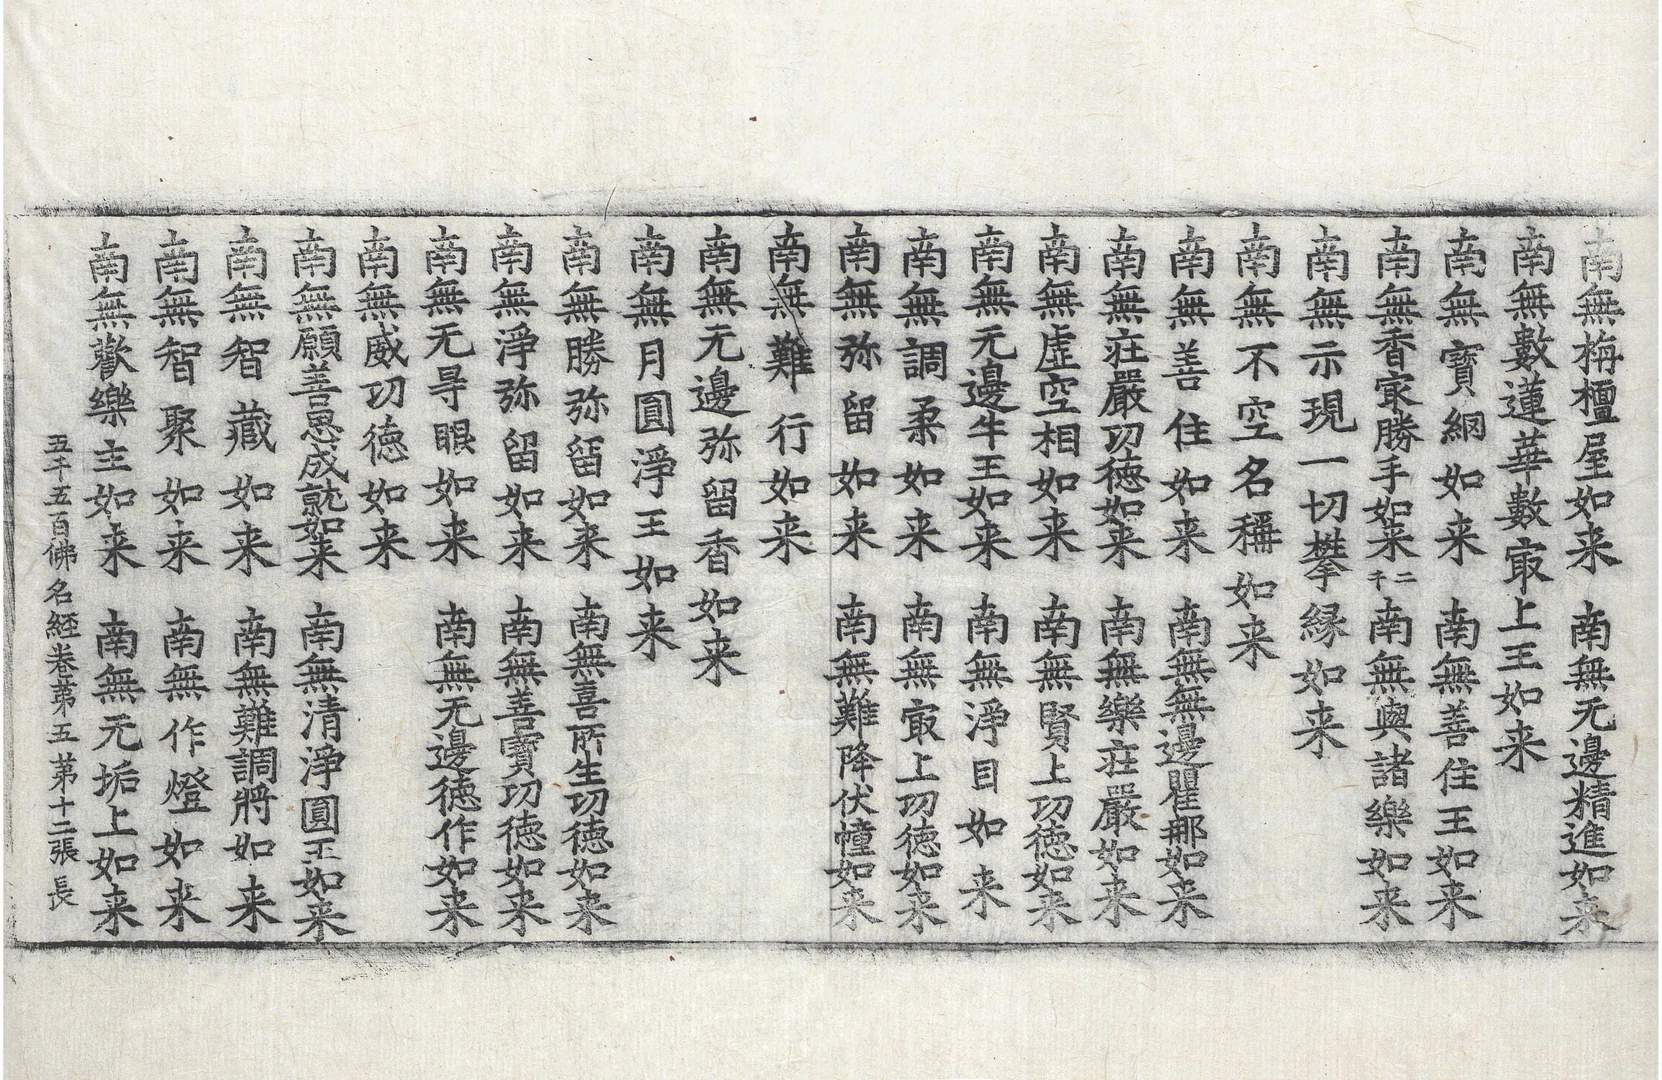 南無栴檀屋如来 南無无邊精進如来
南無數蓮華數㝡上王如来
南無寶網如来 南無善住王如来
南無香㝡勝手如来二千 南無與諸樂如来
南無示現一切攀縁如来
南無不空名稱如来
南無善住如来 南無無邊瞿那如来
南無莊嚴功德如来 南無樂莊嚴如来
南無虛空相如来 南無賢上功德如来
南無无邊牛王如来 南無淨目如来
南無調柔如来 南無㝡上功德如来
南無弥留如来 南無難降伏幢如来
南無難行如来
南無无邊弥留香如来
南無月圓淨王如来
南無勝弥留如来 南無喜所生功德如来
南無淨弥留如来 南無善寶功德如来
南無无㝵眼如来 南無无邊德作如来
南無威功德如来
南無願善思成就如来 南無清淨圓王如来
南無智藏如来 南無難調將如来
南無智聚如来 南無作燈如来
南無歡樂主如来 南無无垢上如来
五千五百佛名経巻第五 第十二張 長